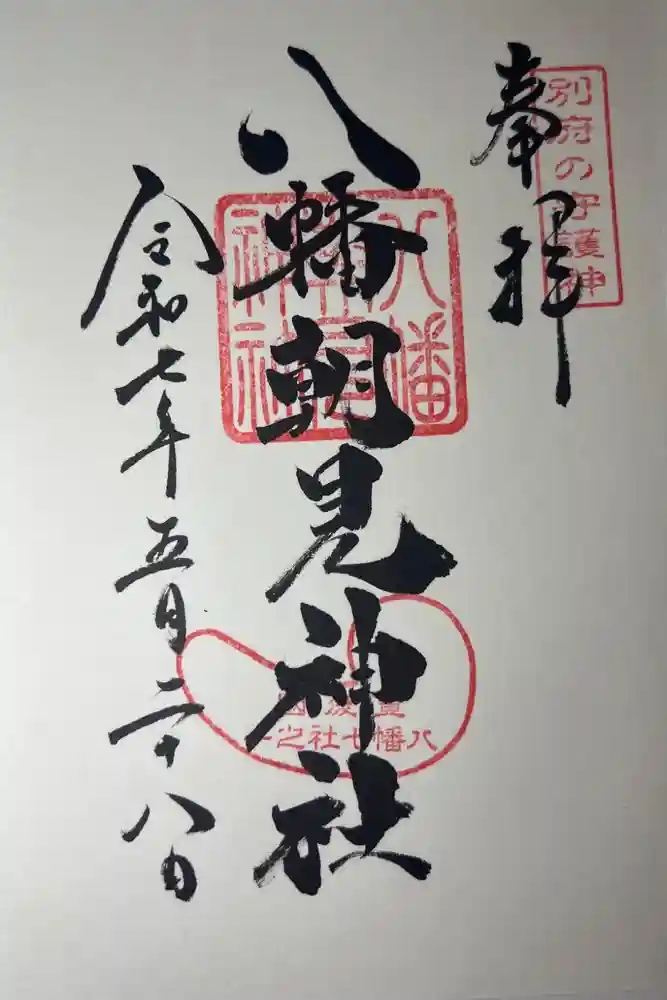 別府の守護神
奉拝
八幡朝見神社
八幡朝見神社
豊後國
八幡七社之一
令和七年五月二十八日